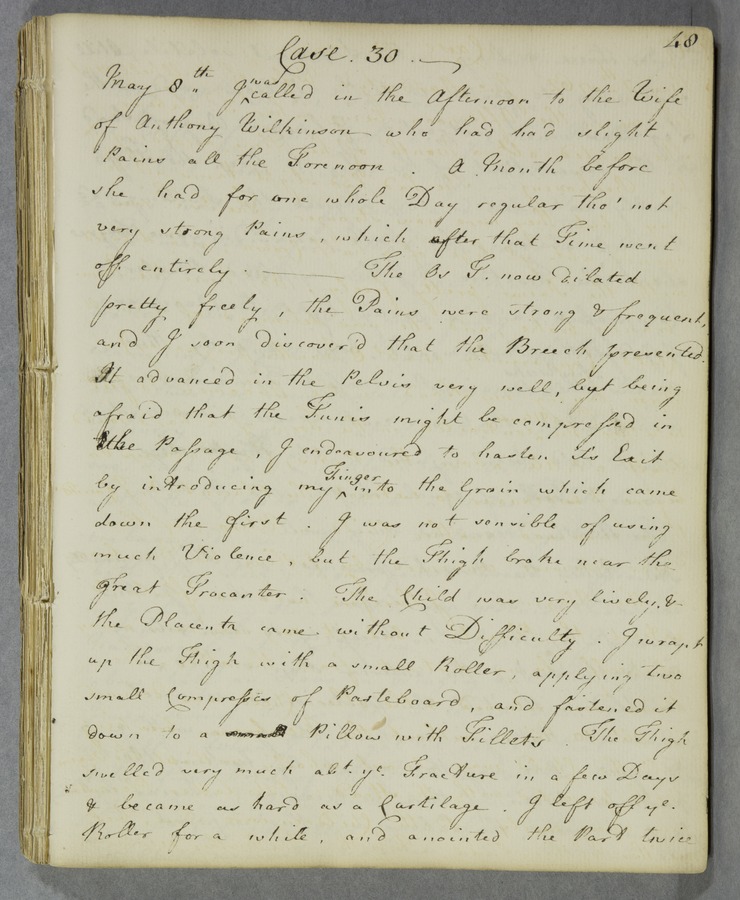 48
Case. 30.
May 8th I was called in the Afternoon to the Wife
of Anthony Wilkinson who had had slight
Pains all the Forenoon. A Month before
she had for one whole Day regular tho' not
very strong Pains, which after that Time went
off entirely. The Os T. now dilated
pretty freely, the Pains were strong & frequent,
and I soon discover'd that the Breech presented.
It advanced in the Pelvis very well, but being
afraid that the Funis might be compressed in
the Passage, I endeavoured to hasten its Exit
by introducing my Finger into the Groin which came
down the first. I was not sensible of using
much Violence, but the Thigh broke near the
great Trocanter. The Child was very lively, &
the Placenta came without Difficulty. I wrapt
up the Thigh with a small Roller, applying two
small Compresses of Pasteboard, and fastened it
down to a Pillow with Fillets. The Thigh
swelled very much abt. ye. Fracture in a few Days
& became as hard as a Cartilage. I left off ye.
Roller for a while, and anointed the Part twice